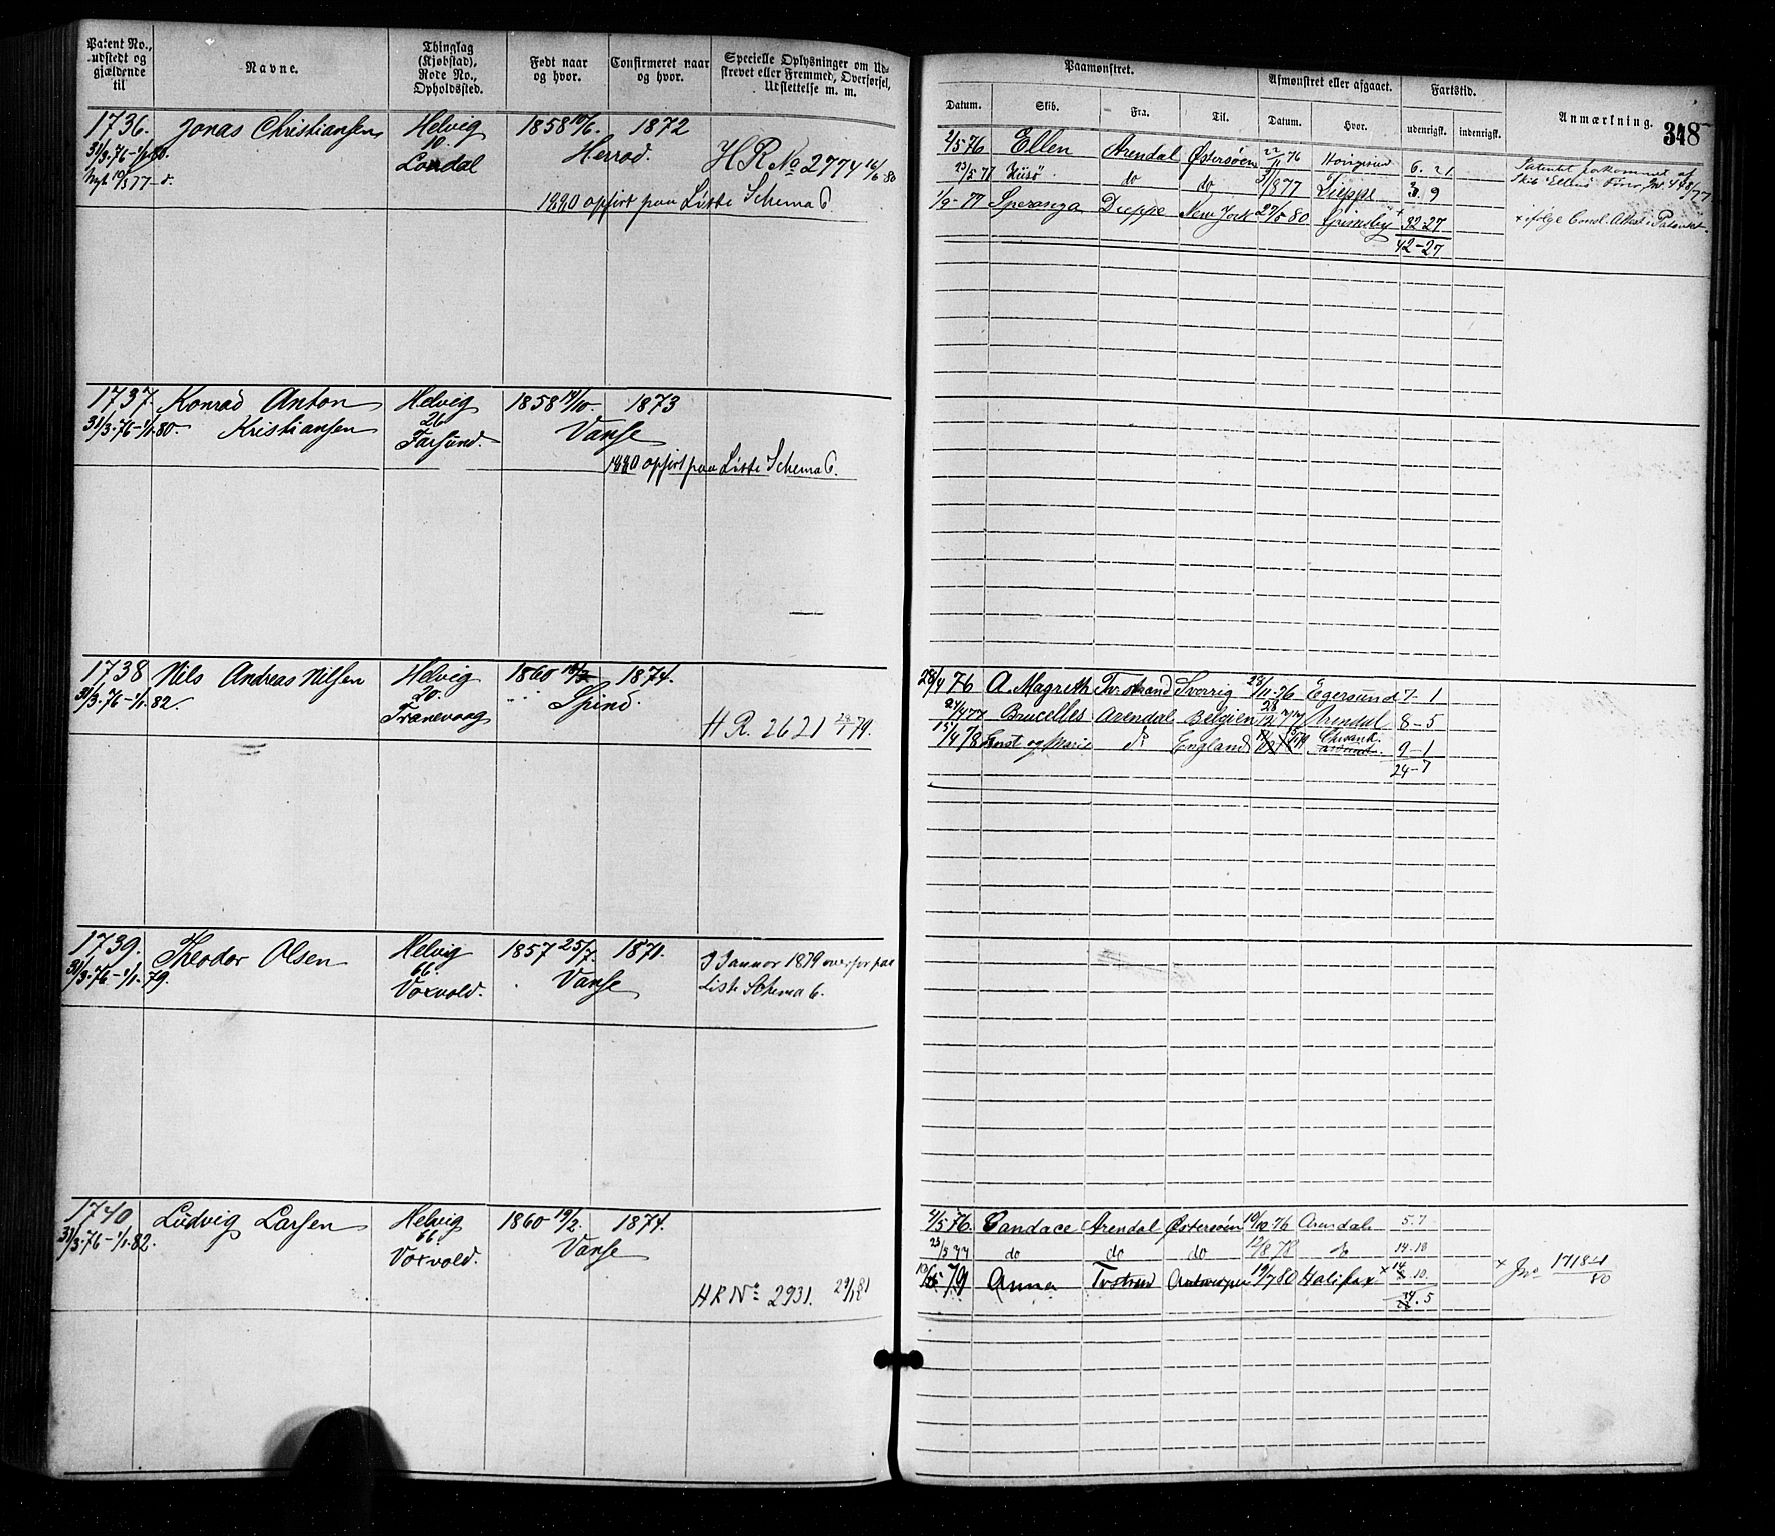 Patent No., udstedt og gjældende til
Navne.
Thinglag (Kjøbstad), Rode No., Opholdssted.
Født naar og hvor.
Confirmeret naar og hvor.
Specielle Oplysninger om Udskrevet eller Fremmed, Overførsel, Udslettelse m. m.
Paamønstret.
Afmønstret eller afgaaet.
Fartstid.
Anmærkning.
348
Datum.
Skib.
Fra.
Til.
Datum.
Hvor.
udenrigsk.
indenrigsk.
1736. Jonas Christiansen Helvig 1858 1872
31/3.76-1/1.80. 10. Herrad. H R No 2774 16/6 80
Nyt 19/5 77 d. Londal
1880 opført paa Liste Schema 6.
2/5 76 Ellen Arendal Østersøen 22/11 76 6. 21
23/5 77 do do 31/8 77 Dieppe 3. 9
1/9-77 Speranza Dieppe New York 27/5 80 Grimsby + 32-27
42-27
Patentet forkommet af
Skib "Ellens" Fører
+ ifølge Consl. Attest i Patentet.
1737. Konrad Anton Helvig 1858 1873
31/3.76-1/1.80. Kristiansen 26 Vanse
Farsund.
1880 opført paa Liste Schema 6.
1738 Nils Andreas Nilsen Helvig 1860 1874.
31/3.76-1/1.82. 20. Spind.
Tranevaag H R. 2621 79.
28/4 76 A. Magreth Tvestrand Sverrig 23/11-76 Egersund 7-1
27/4 77 Brucelles Arendal Belgien Arendal 8-5
15/4 78 Ernst og Marie do England 9-1
24-7
1739. Theodor Olsen Helvig 1857 25/7. 1871.
31/3.76-1/1.79. 66. Vanse
Voxvold.
3 Januar 1879 overfør paa
Liste Schema 6.
1740 Ludvig Larsen Helvig 1860 19/2. 1874.
31/3.76-1/1.82. 66. Vanse
Voxvold.
H R No 2931.
2/5 76 Candace Arendal Østersøen 19/10 76 Arendal 5.7
do do do 12/8 78 do 14.18
79 Anna Tvstrand Antwerpen 19/7 80 Halifax + 14.10.
34.5
+ Jno 1718-4/80